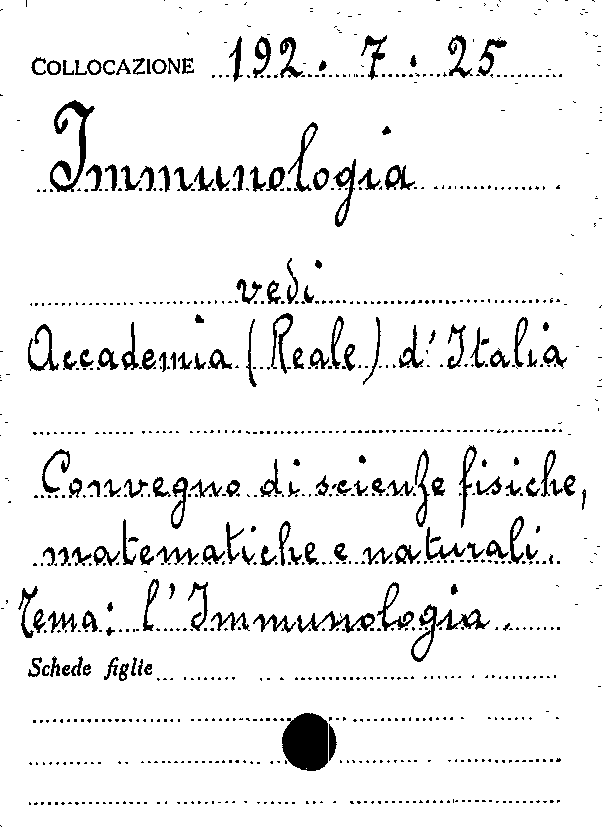 COLLOCAZIONE 192 . 7 . 25
Immunologia
vedi
Accademia (Reale) d'Italia
Convegno di scienze fisiche,
matematiche e naturali.
Tema: l'Immunologia.
Schede figlie